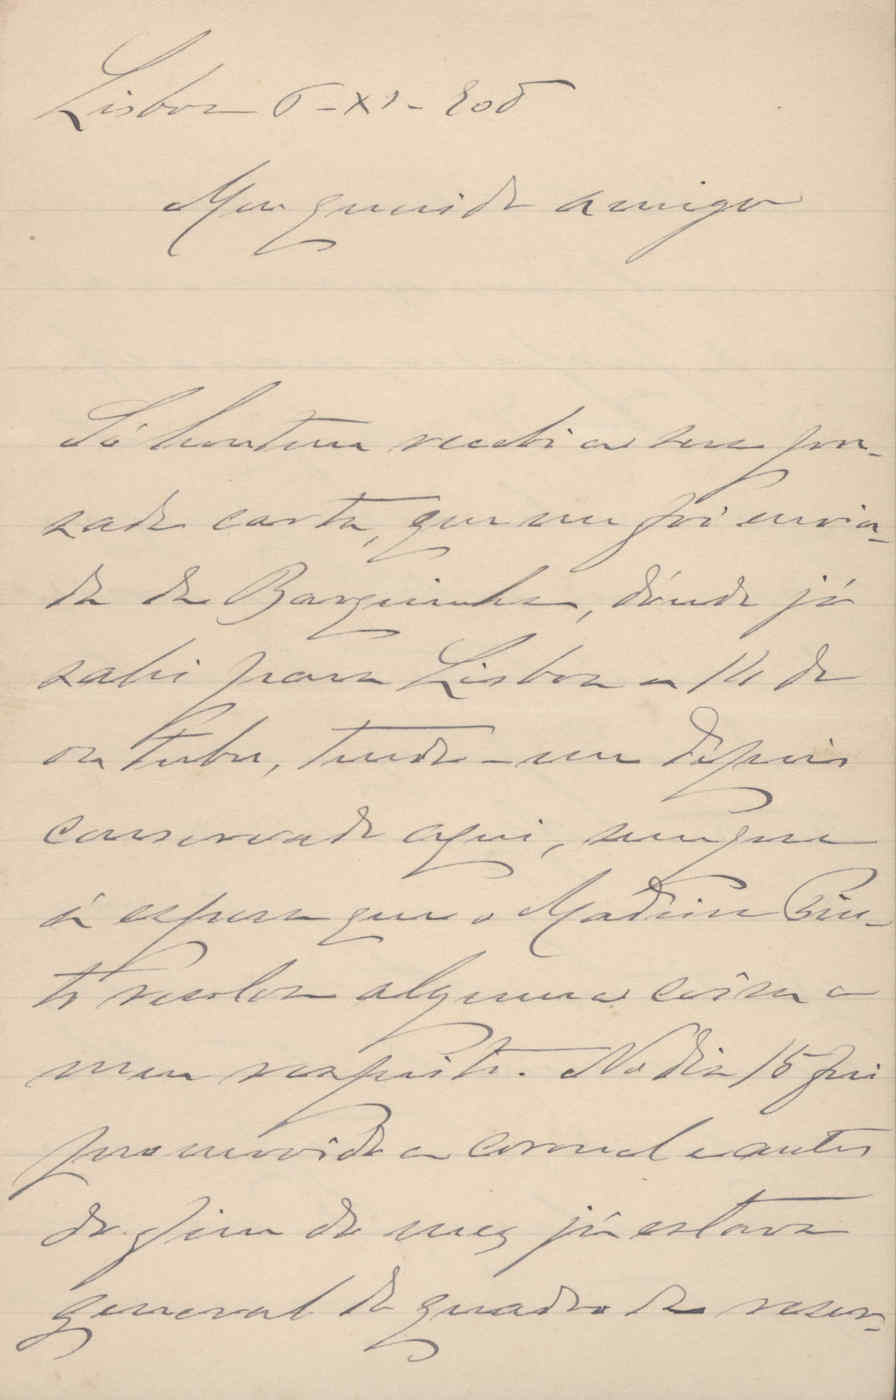 Lisboa 6-XI-905
Meu querido amigo
Só hontem recebi a sua pre-
zada carta, que me foi envia-
da da Barquinha, d'onde já
sahi para Lisboa a 14 de
outubro, tendo-me depois
conservado aqui, sempre
á espera que o Madeira Pin-
to resolva alguma coisa a
meu respeito. No dia 15 fui
promovido a coronel e antes
do fim do mez já estava
general do quadro de reser-